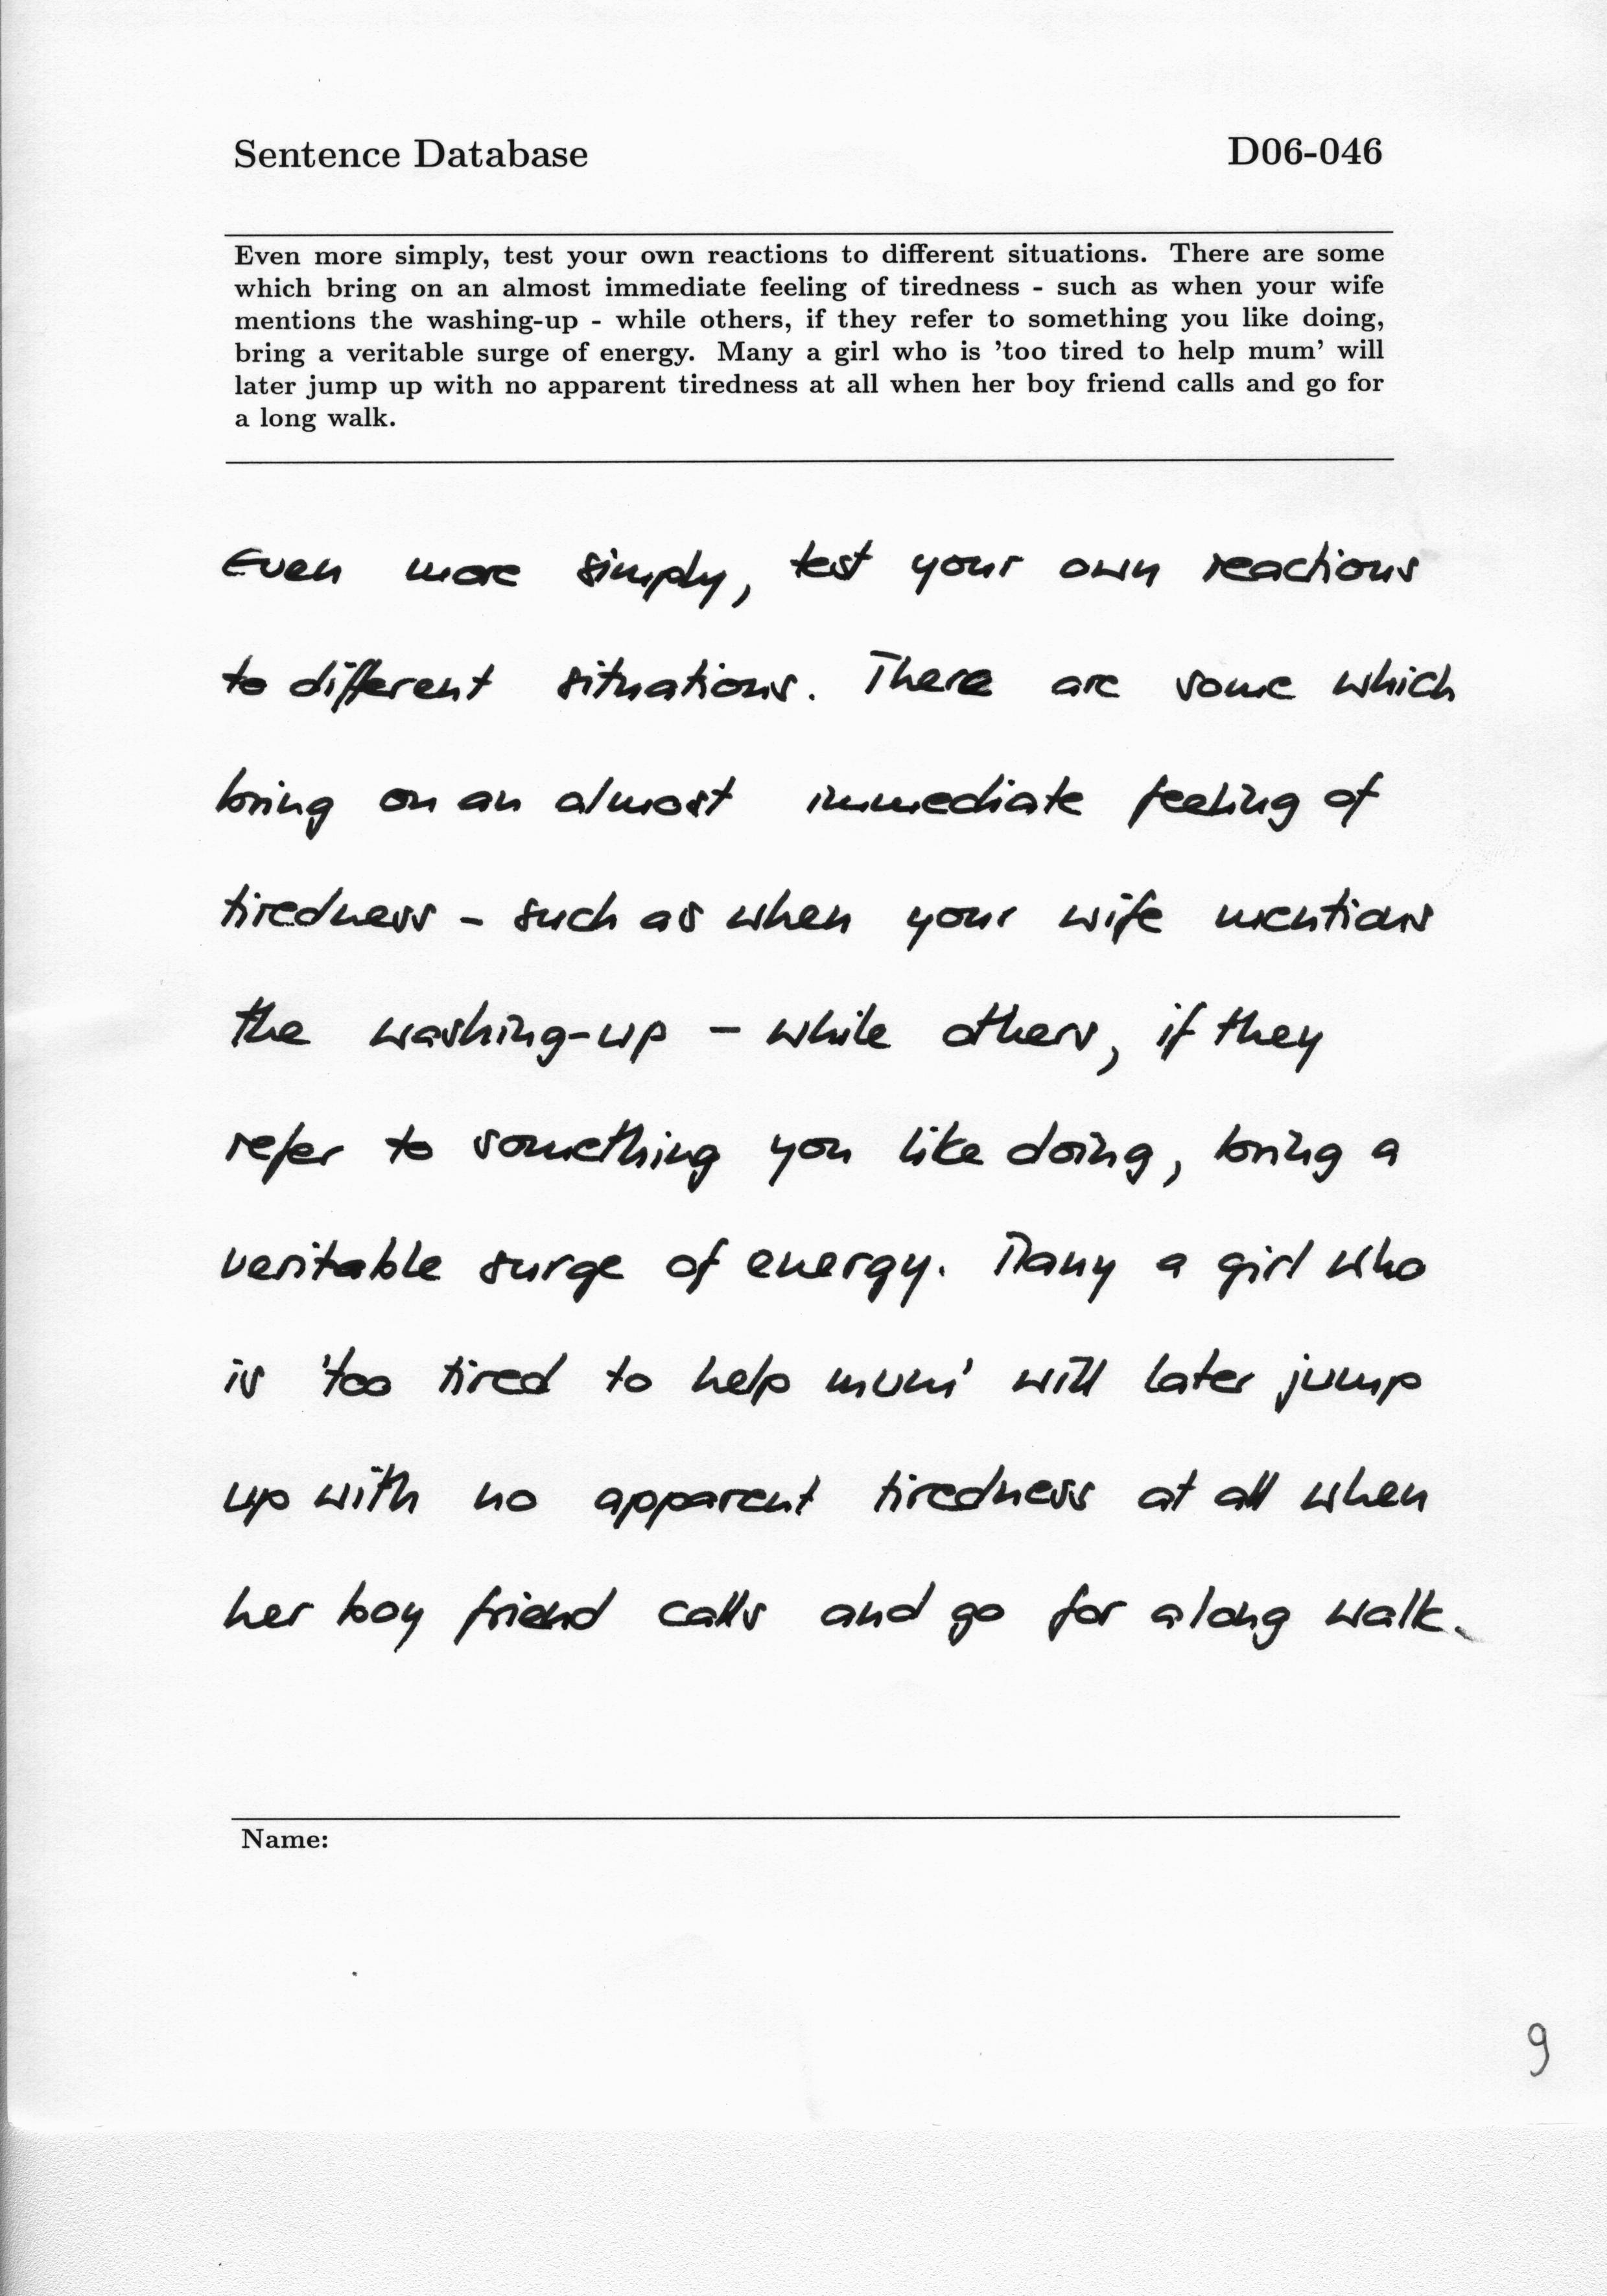 Sentence Database D06-046
Even more simply, test your own reactions to different situations. There are some
which bring on an almost immediate feeling of tiredness - such as when your wife
mentions the washing-up - while others, if they refer to something you like doing,
bring a veritable surge of energy. Many a girl who is 'too tired to help mum' will
later jump up with no apparent tiredness at all when her boy friend calls and go for
a long walk.
Even more simply, test your own reactions
to different situations. There are some which
bring on an almost immediate feeling of
tiredness - such as when your wife mentions
the washing-up - while others, if they
refer to something you like doing, bring a
veritable surge of energy. Many a girl who
is 'too tired to help mum' will later jump
up with no apparent tiredness at all when
her boy friend calls and go for a long walk.
Name:
9